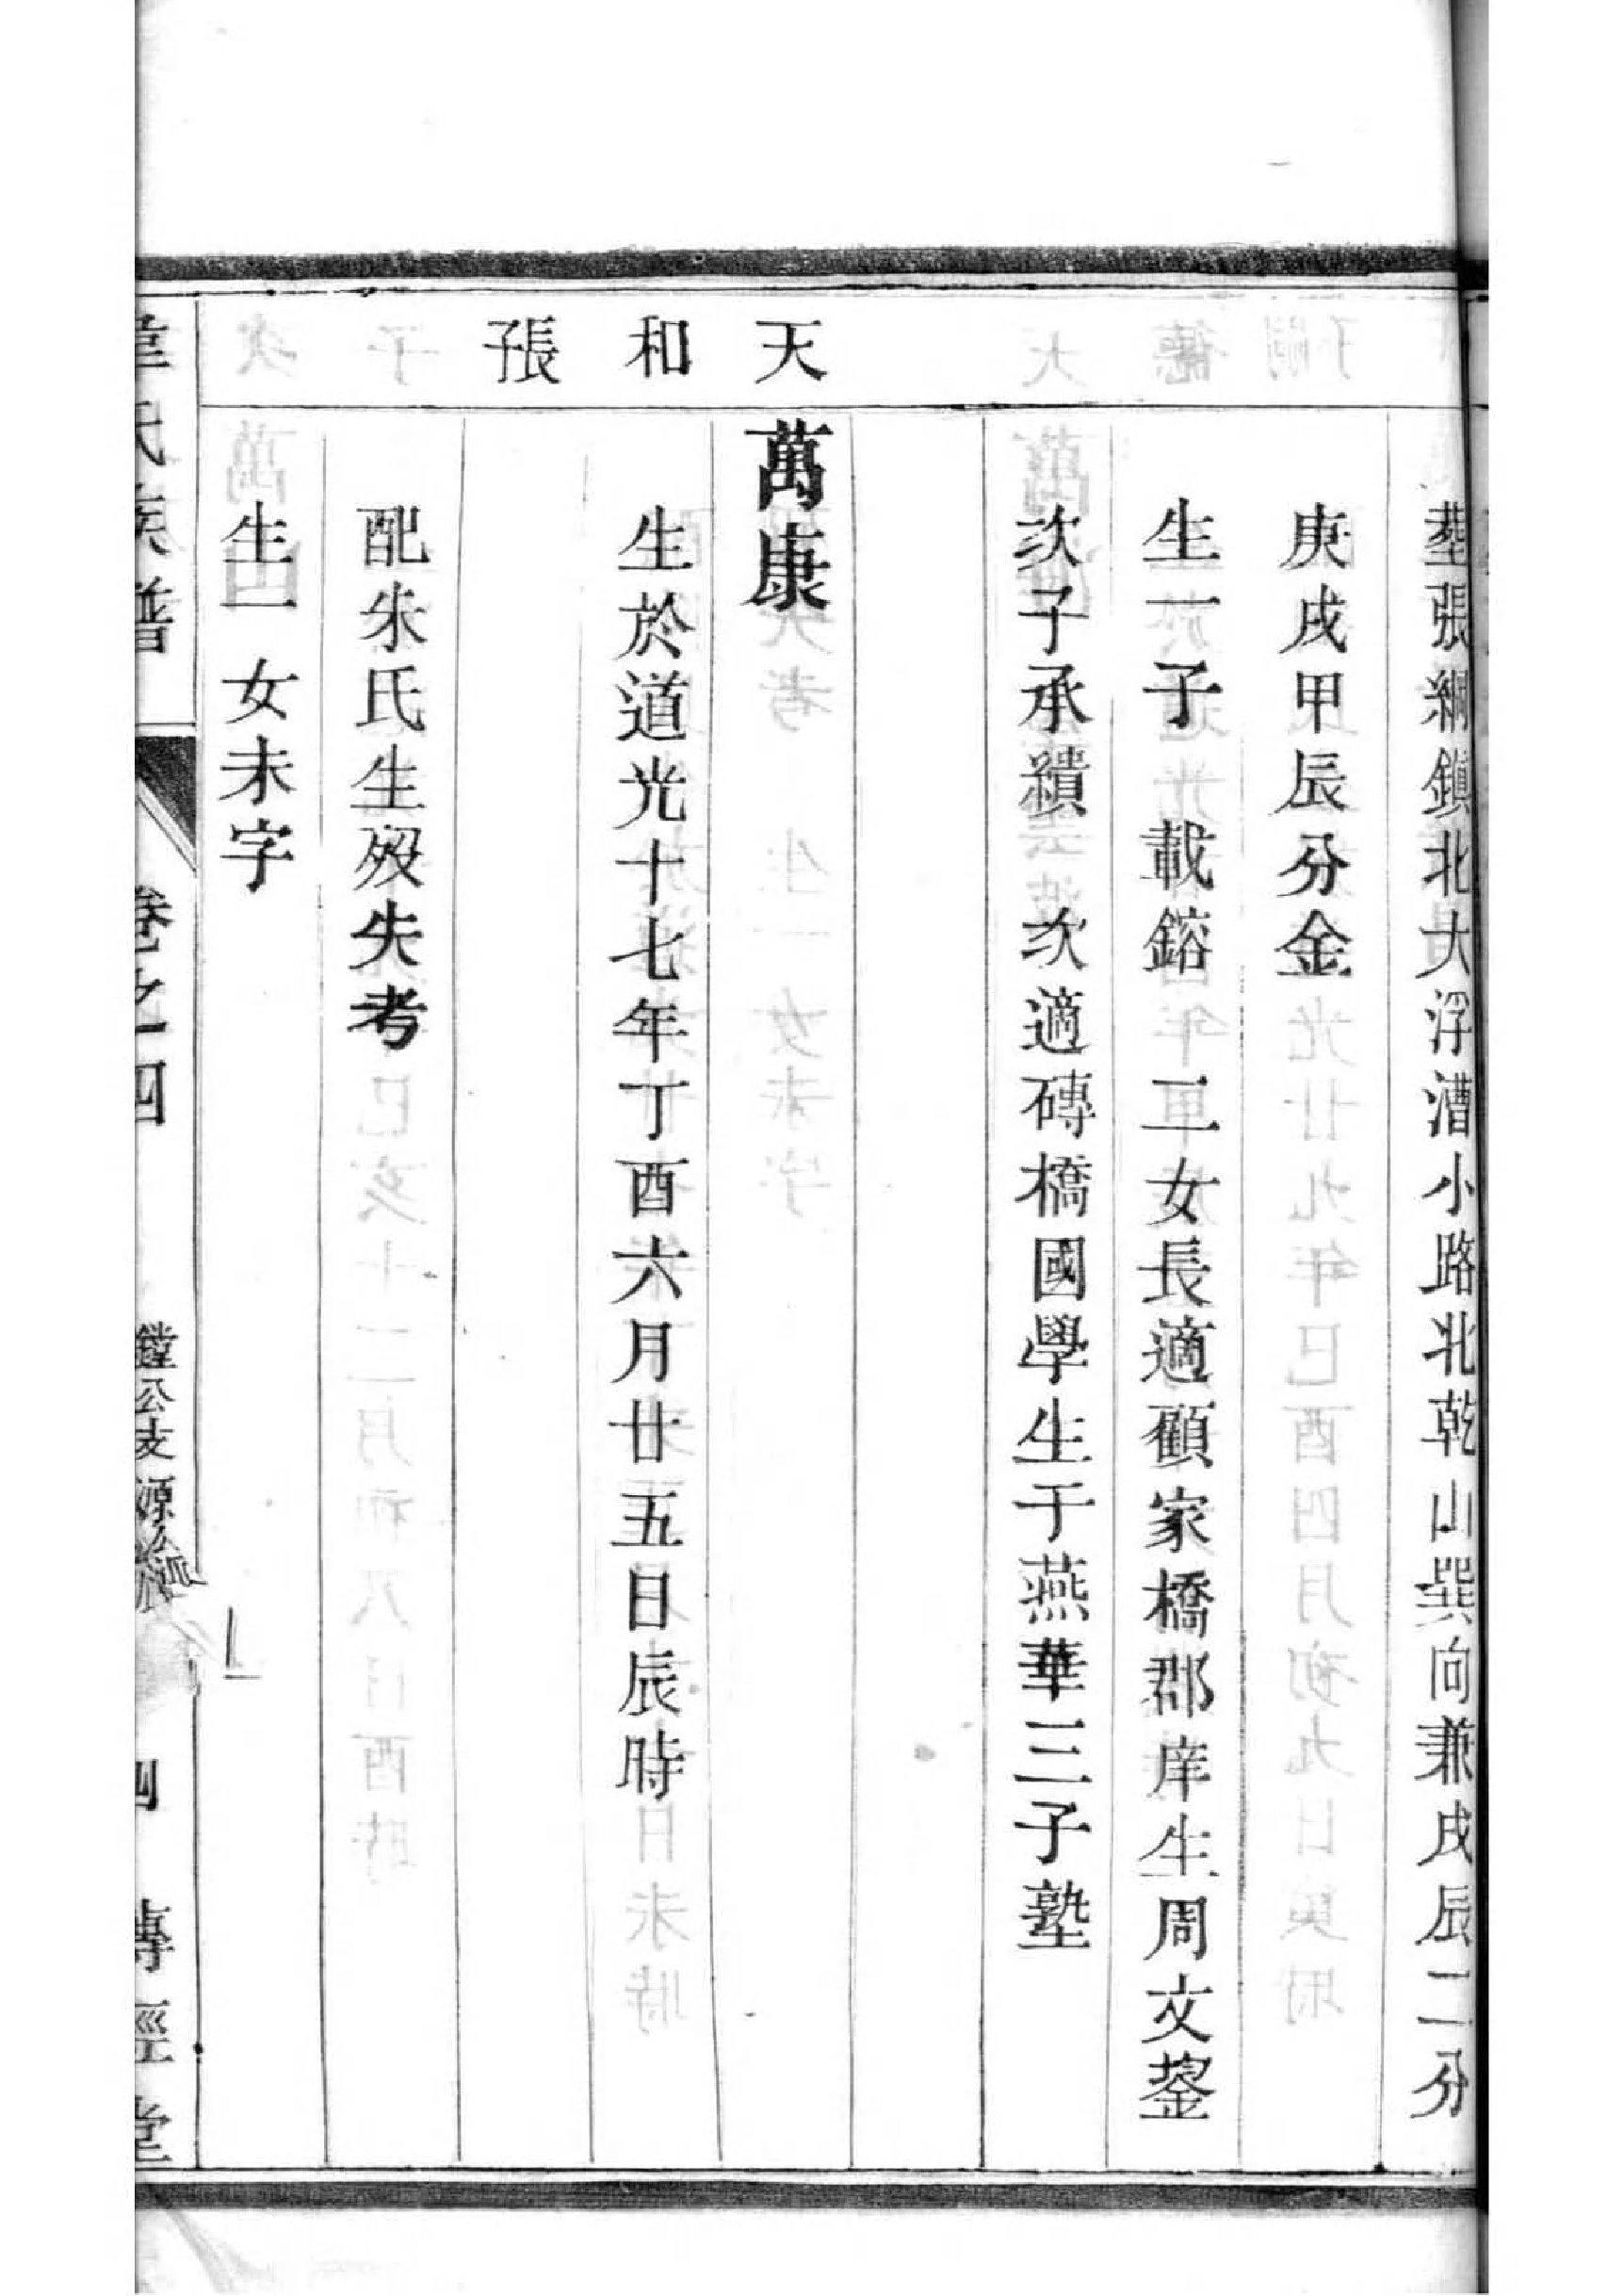 塟張綱鎮北大浮漕小路北乾山巽向兼戌辰二分
庚戌甲辰分金
生一子 載鎔 二女長適顧家橋郡庠生周文鋆
次子承繢 次適磚橋國學生于燕華三子塾
天 萬康
和 生於道光十七年丁酉六月廿五日辰時
張子
配朱氏生歿失考
生一女未字
韋氏族譜 卷之四 鏜公支源公派 四 傳經堂